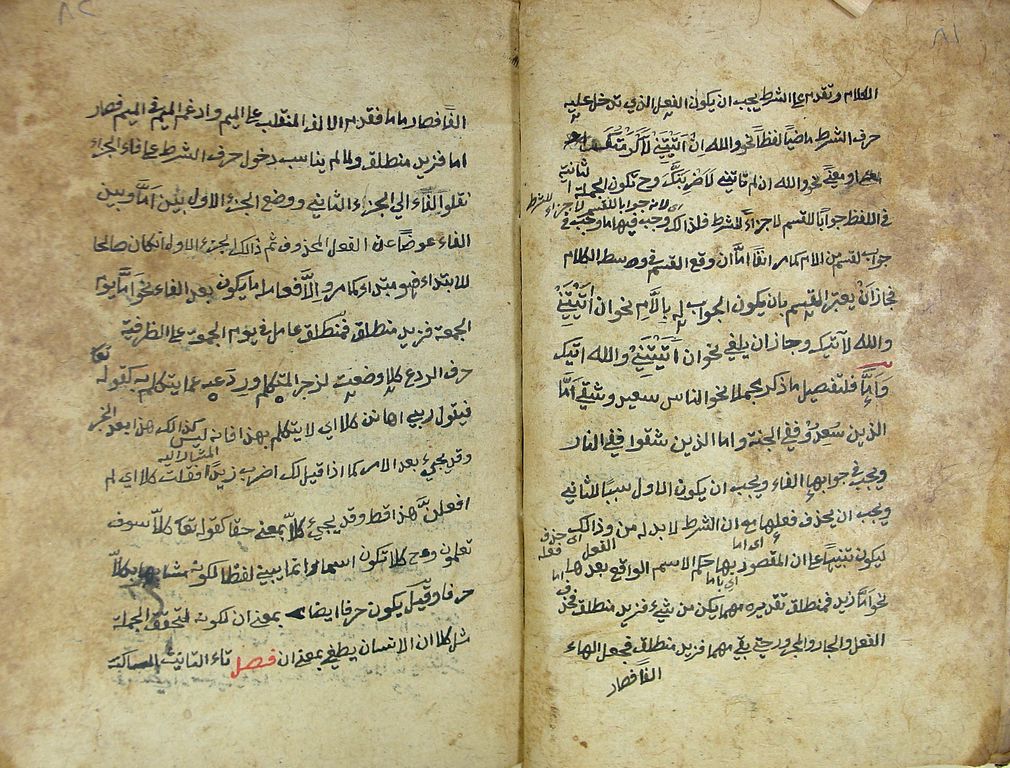 ٨١
الكلام وتقدم على الشرط يجب ان يكون الفعل الذي تدخل عليه
حرف الشرط ماضيًا لفظًا نحو والله ان اتيتني لاكرمتك
او معنى نحو والله ان لم تاتيني لاضربنك وح تكون الجملة الثانية
اى لانه جوابا للقسم لا جزاء للشرط
في اللفظ جوابًا للقسم لا جزاءً للشرط فلذلك وجب فيها ما وجب في
جواب القسم من اللام كما مر انفًا امّا ان وقع القسم في وسط الكلام
فجاز انْ يعتبر القسم بان يكون الجواب له بالّام نحو ان اتيتني
والله لآتيك وجاز ان يلغى نحو ان اتيتني والله اتيك
وامَّا فلتفصيل ما ذكر مجملا نحو الناس سعيد وشقي امَّا
الذين سعدوا ففي الجنة واما الذين شقوا ففي النار
ويجب في جوابها الفاء ويجب ان يكون الاول سببًا للثاني
ويجب ان يحذف فعلها مع ان الشرط لا بد له من وذالك
اى حذف فعله
اى اما الفعل
ليكون تنبيهًا على ان المقصود بها حكم الاسم الواقع بعدها
اى باما
نحو امّا زيد فمنطلق تقديره مهما يكن من شيء فزيد منطلق فحذف
الفعل والجار والمجرور حتى بقي مهما فزيد منطلق فجعل الهاء
الفًا فصار
٨٢
الفًا فصار ماما فقدم الالف المنقلب على الميم وادغم الميم في الميم فصار
اما فزيد منطلق ولما لم يناسب دخول حرف الشرط على فاء الجزاء
نقلوا الفاء الى الجزء الثاني ووضع الجزء الاول بين امّا وبين
الفاء عوضًا عن الفعل المحذوف ثم ذالك الجزء الاول ان كان صالحا
للابتداء فهو مبتداء كما مر والّا فعامله ما يكون بعد الفاء نحو امّا يوم
الجمعة فزيد منطلق فمنطلق عامل في يوم الجمعة على الظرفية
حرف الردع كلا وضعت لزجر المتكلم وردعه عما يتكلم به كقوله تعا
فيقول ربي اهانن كلا اي لا يتكلم بهذا فانه ليس كذالك هذا بعد الخبر
وقد يجيء بعد الامر كما اذا قيل لك اضرب زيدًا فقلت كلا اي لم
افعل هذا قط وقد يجيء كلّا بمعنى حقا كقوله تعا كلّا سوف
تعلمون وح تكون اسما وانما يبنى لفظا لكونه مشابها بكلّا
حرفا وقيل يكون حرفا ايضا بمعنى ان لكونه لتحقق الجملة
مثل كلا ان الانسان ليطغى بمعنى ان فصل تاء التانيث الساكنة